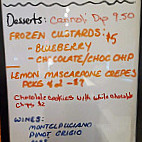 Desserts: Cannoli Dip 9.50
FROZEN CUSTARDS: $5
- BLUEBERRY
- CHOCOLATE/CHOC CHIP
LEMON MASCARPONE CREPES
Chocolate cookies with white chocolate
WINES:
MONTEPULCIANO
PINOT GRIGIO